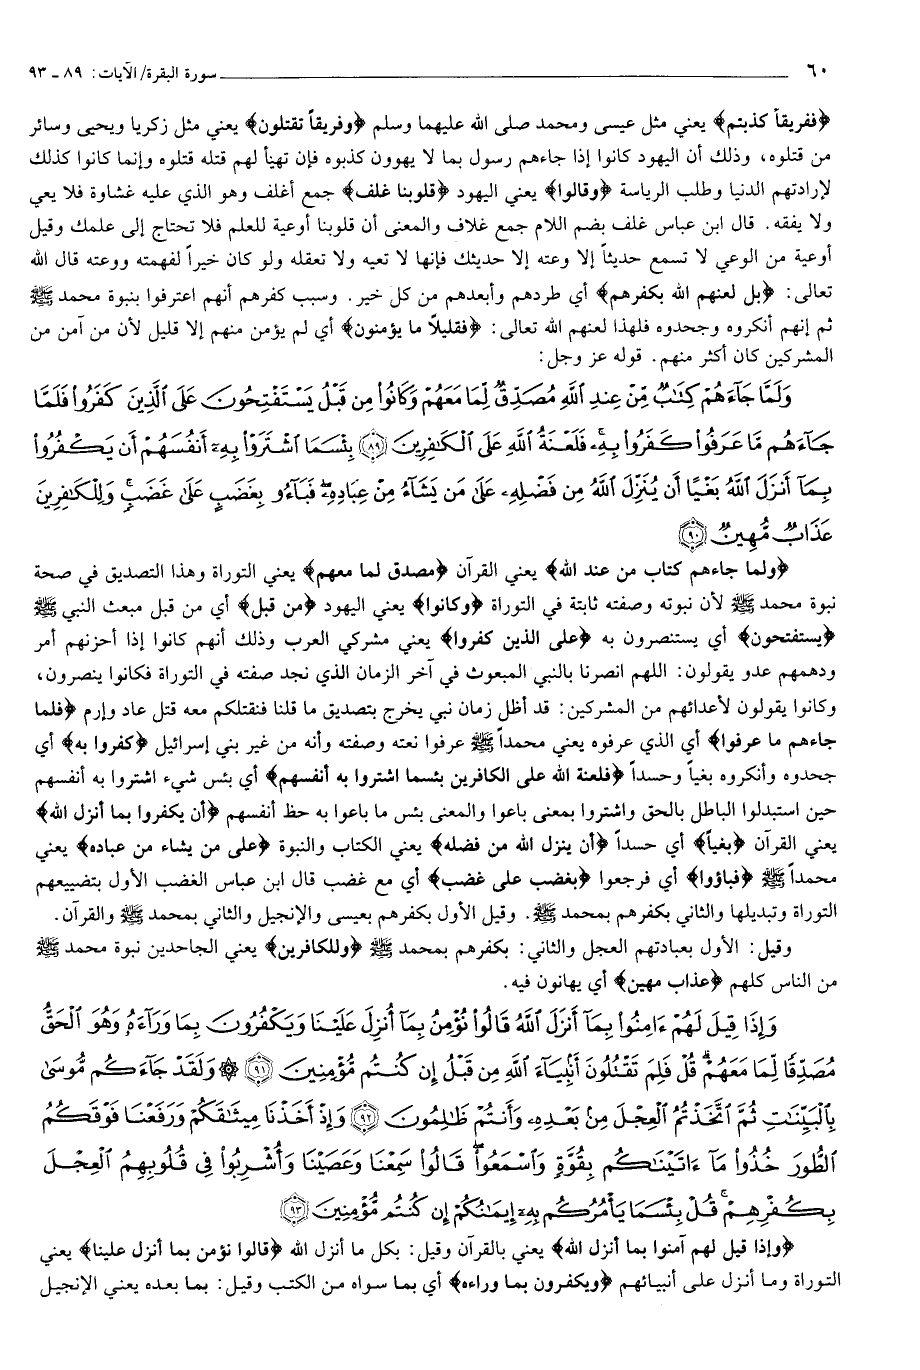 ٦٠ سورة البقرة/ الآيات: ٨٩ ـ ٩٣
﴿ففريقاً كذبتم﴾ يعني مثل عيسى ومحمد صلى الله عليهما وسلم ﴿وفريقاً تقتلون﴾ يعني مثل زكريا ويحيى وسائر
من قتلوه، وذلك أن اليهود كانوا إذا جاءهم رسول بما لا يهوون كذبوه فإن تهيأ لهم قتله قتلوه وإنما كانوا كذلك
لإرادتهم الدنيا وطلب الرياسة ﴿وقالوا﴾ يعني اليهود ﴿قلوبنا غلف﴾ جمع أغلف وهو الذي عليه غشاوة فلا يعي
ولا يفقه. قال ابن عباس غلف بضم اللام جمع غلاف والمعنى أن قلوبنا أوعية للعلم فلا تحتاج إلى علمك وقيل
أوعية من الوعي لا تسمع حديثاً إلا وعته إلا حديثك فإنها لا تعيه ولا تعقله ولو كان خيراً لفهمته ووعته قال الله
تعالى: ﴿بل لعنهم الله بكفرهم﴾ أي طردهم وأبعدهم من كل خير. وسبب كفرهم أنهم اعترفوا بنبوة محمد ﷺ
ثم إنهم أنكروه وجحدوه فلهذا لعنهم الله تعالى: ﴿فقليلاً ما يؤمنون﴾ أي لم يؤمن منهم إلا قليل لأن من آمن من
المشركين كان أكثر منهم. قوله عز وجل:
وَلَمَّا جَآءَهُمْ كِتَٰبٌ مِّنْ عِندِ ٱللَّهِ مُصَدِّقٌ لِّمَا مَعَهُمْ وَكَانُوا۟ مِن قَبْلُ يَسْتَفْتِحُونَ عَلَى ٱلَّذِينَ كَفَرُوا۟ فَلَمَّا
جَآءَهُم مَّا عَرَفُوا۟ كَفَرُوا۟ بِهِۦ فَلَعْنَةُ ٱللَّهِ عَلَى ٱلْكَٰفِرِينَ ﴿٨٩﴾ بِئْسَمَا ٱشْتَرَوْا۟ بِهِۦٓ أَنفُسَهُمْ أَن يَكْفُرُوا۟
بِمَآ أَنزَلَ ٱللَّهُ بَغْيًا أَن يُنَزِّلَ ٱللَّهُ مِن فَضْلِهِۦ عَلَىٰ مَن يَشَآءُ مِنْ عِبَادِهِۦ فَبَآءُو بِغَضَبٍ عَلَىٰ غَضَبٍ وَلِلْكَٰفِرِينَ
عَذَابٌ مُّهِينٌ ﴿٩٠﴾
﴿ولما جاءهم كتاب من عند الله﴾ يعني القرآن ﴿مصدق لما معهم﴾ يعني التوراة وهذا التصديق في صحة
نبوة محمد ﷺ لأن نبوته وصفته ثابتة في التوراة ﴿وكانوا﴾ يعني اليهود ﴿من قبل﴾ أي من قبل مبعث النبي ﷺ
﴿يستفتحون﴾ أي يستنصرون به ﴿على الذين كفروا﴾ يعني مشركي العرب وذلك أنهم كانوا إذا أحزنهم أمر
ودهمهم عدو يقولون: اللهم انصرنا بالنبي المبعوث في آخر الزمان الذي نجد صفته في التوراة فكانوا ينصرون،
وكانوا يقولون لأعدائهم من المشركين: قد أظل زمان نبي يخرج بتصديق ما قلنا فنقتلكم معه قتل عاد وإرم ﴿فلما
جاءهم ما عرفوا﴾ أي الذي عرفوه يعني محمداً ﷺ عرفوا نعته وصفته وأنه من غير بني إسرائيل ﴿كفروا به﴾ أي
جحدوه وأنكروه بغياً وحسداً ﴿فلعنة الله على الكافرين بئسما اشتروا به أنفسهم﴾ أي بئس شيء اشتروا به أنفسهم
حين استبدلوا الباطل بالحق واشتروا بمعنى باعوا والمعنى بئس ما باعوا به حظ أنفسهم ﴿أن يكفروا بما أنزل الله﴾
يعني القرآن ﴿بغياً﴾ أي حسداً ﴿أن ينزل الله من فضله﴾ يعني الكتاب والنبوة ﴿على من يشاء من عباده﴾ يعني
محمداً ﷺ ﴿فباؤوا﴾ أي فرجعوا ﴿بغضب على غضب﴾ أي مع غضب قال ابن عباس الغضب الأول بتضييعهم
التوراة وتبديلها والثاني بكفرهم بمحمد ﷺ. وقيل الأول بكفرهم بعيسى والإنجيل والثاني بمحمد ﷺ والقرآن.
وقيل: الأول بعبادتهم العجل والثاني: بكفرهم بمحمد ﷺ ﴿وللكافرين﴾ يعني الجاحدين نبوة محمد ﷺ
من الناس كلهم ﴿عذاب مهين﴾ أي يهانون فيه.
وَإِذَا قِيلَ لَهُمْ ءَامِنُوا۟ بِمَآ أَنزَلَ ٱللَّهُ قَالُوا۟ نُؤْمِنُ بِمَآ أُنزِلَ عَلَيْنَا وَيَكْفُرُونَ بِمَا وَرَآءَهُۥ وَهُوَ ٱلْحَقُّ
مُصَدِّقًا لِّمَا مَعَهُمْ ۗ قُلْ فَلِمَ تَقْتُلُونَ أَنۢبِيَآءَ ٱللَّهِ مِن قَبْلُ إِن كُنتُم مُّؤْمِنِينَ ﴿٩١﴾ ۞ وَلَقَدْ جَآءَكُم مُّوسَىٰ
بِٱلْبَيِّنَٰتِ ثُمَّ ٱتَّخَذْتُمُ ٱلْعِجْلَ مِنۢ بَعْدِهِۦ وَأَنتُمْ ظَٰلِمُونَ ﴿٩٢﴾ وَإِذْ أَخَذْنَا مِيثَٰقَكُمْ وَرَفَعْنَا فَوْقَكُمُ
ٱلطُّورَ خُذُوا۟ مَآ ءَاتَيْنَٰكُم بِقُوَّةٍ وَٱسْمَعُوا۟ ۖ قَالُوا۟ سَمِعْنَا وَعَصَيْنَا وَأُشْرِبُوا۟ فِى قُلُوبِهِمُ ٱلْعِجْلَ
بِكُفْرِهِمْ ۚ قُلْ بِئْسَمَا يَأْمُرُكُم بِهِۦٓ إِيمَٰنُكُمْ إِن كُنتُم مُّؤْمِنِينَ ﴿٩٣﴾
﴿وإذا قيل لهم آمنوا بما أنزل الله﴾ يعني بالقرآن وقيل: بكل ما أنزل الله ﴿قالوا نؤمن بما أنزل علينا﴾ يعني
التوراة وما أنزل على أنبيائهم ﴿ويكفرون بما وراءه﴾ أي بما سواه من الكتب وقيل: بما بعده يعني الإنجيل